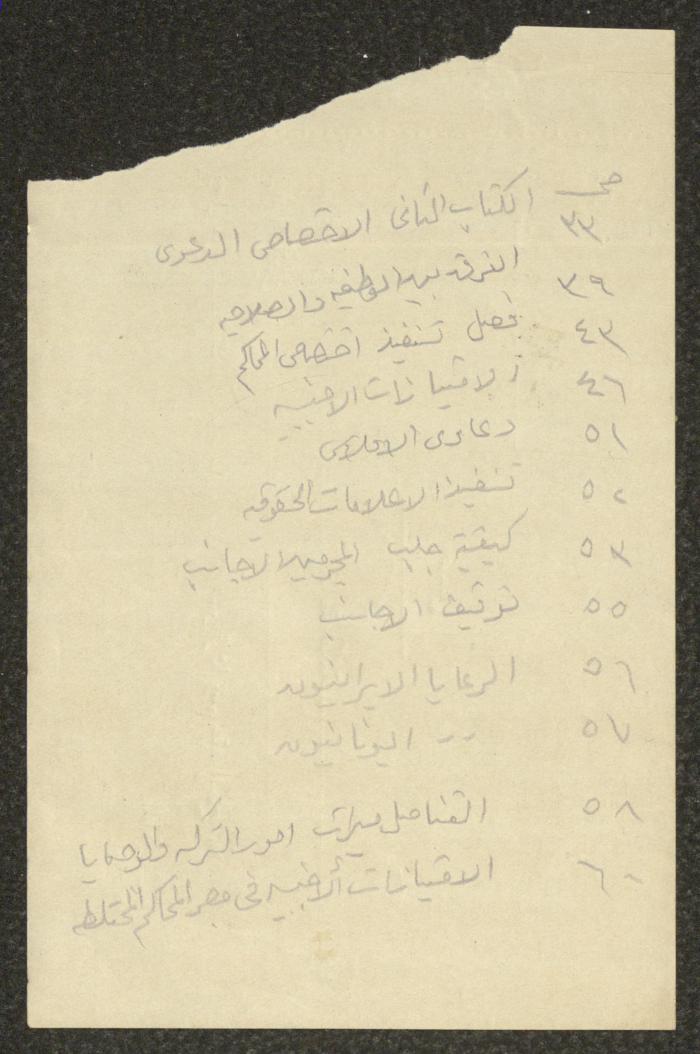 صح
٣٣ الكتاب الثاني الاختصاص الدعوى
٣٩ الفرق بين الوظيفه والصلاحيه
٤٣ فصل تنفيذ اختصاص المحاكم
٤٦ الامتيازات الاجنبيه
٥١ دعاوى الافلاس
٥٢ تنفيذ الاعلامات الحقوقيه
٥٣ كيفية جلب المجرمين الاجانب
٥٥ توقيف الاجانب
٥٦ الرعايا الايرانيون
٥٧ ـرر اليونانيون
٥٨ القناصل ميراث امور التركه والوصايا
٦٠ الامتيازات الأجنبيه في مصر المحاكم المختلطه